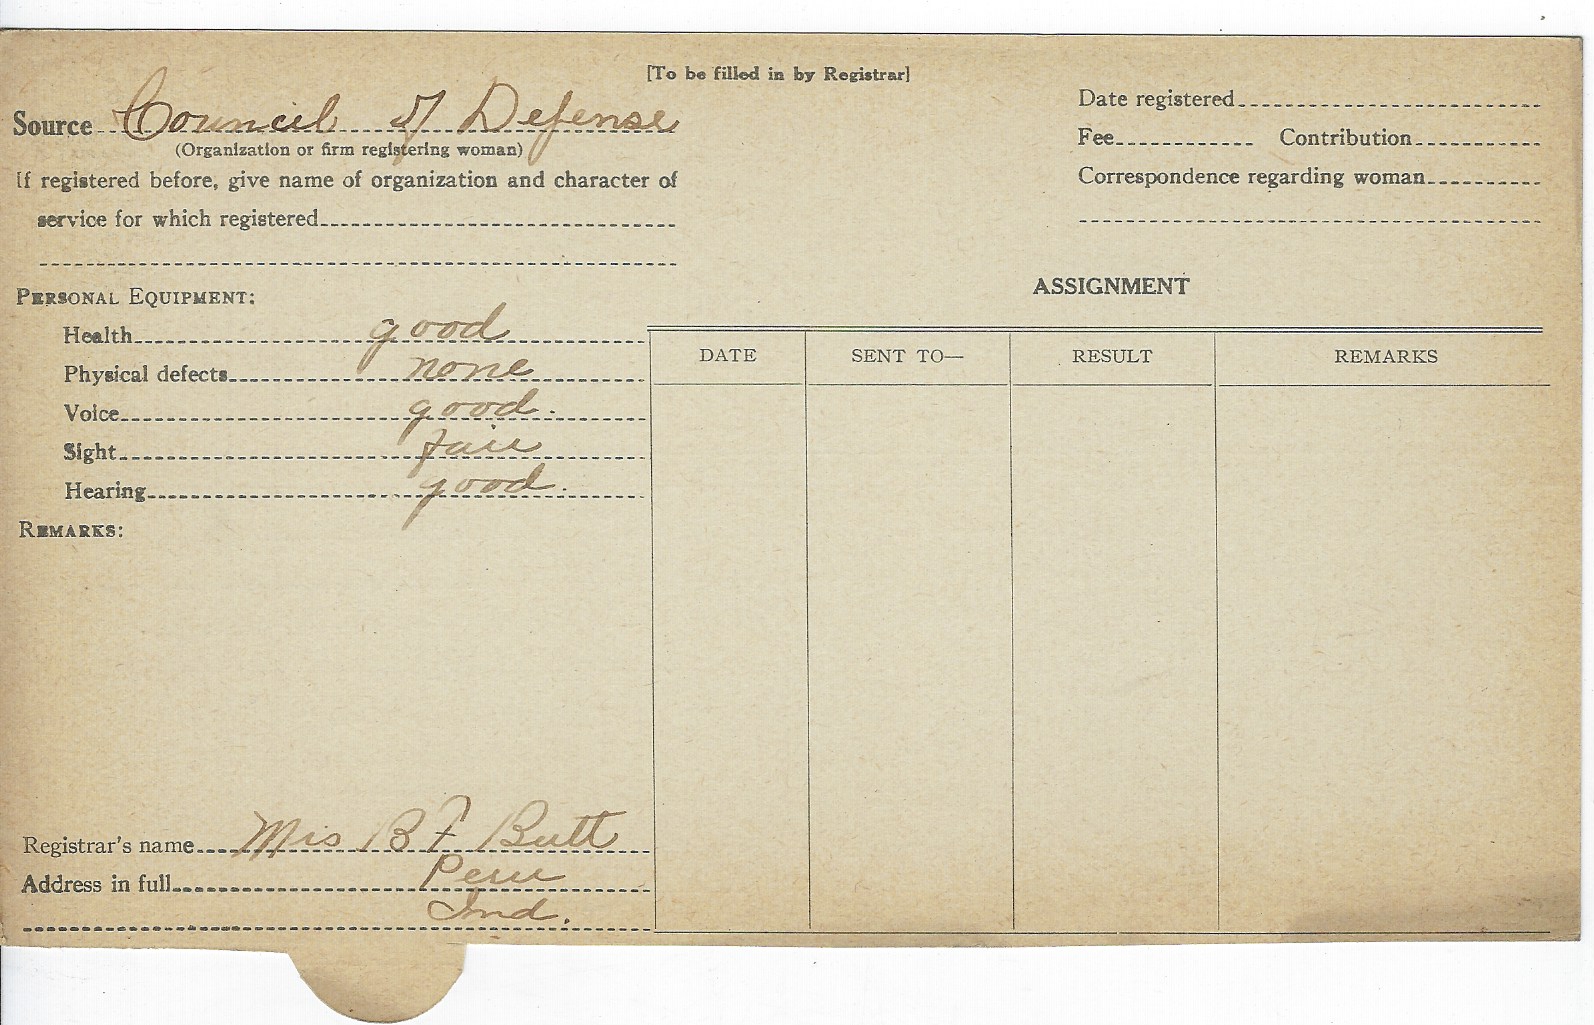 [To be filled in by Registrar]
Source Council of Defense
(Organization or firm registering woman)
If registered before, give name of organization and character of
service for which registered
Date registered
Fee Contribution
Correspondence regarding woman
PERSONAL EQUIPMENT:
Health good
Physical defects none
Voice good.
Sight fair
Hearing good.
REMARKS:
Registrar's name Mrs B F Butt
Address in full Peru
Ind.
ASSIGNMENT
DATE SENT TO— RESULT REMARKS